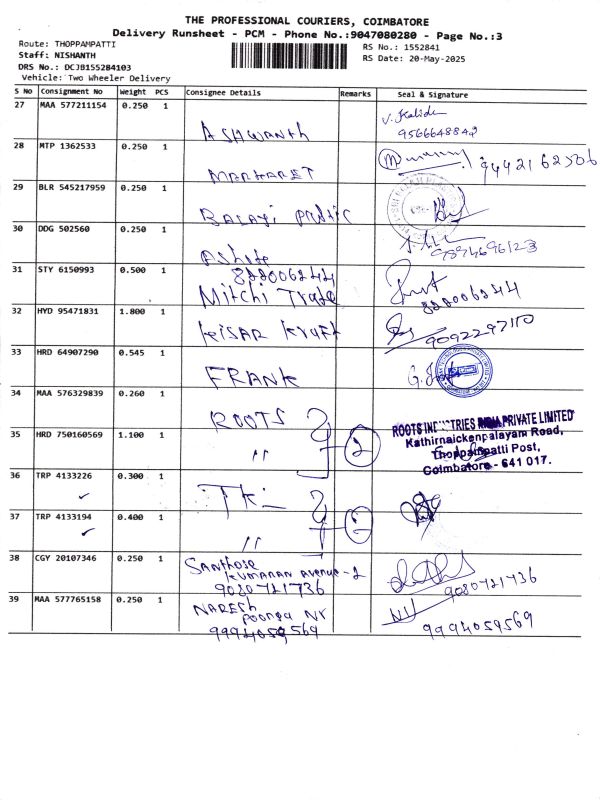 THE PROFESSIONAL COURIERS, COIMBATORE
Delivery Runsheet - PCM - Phone No.:9047080280 - Page No.:3
Route: THOPPAMPATTI
RS No.: 1552841
Staff: NISHANTH
RS Date: 20-May-2025
DRS No.: DCJB155284103
Vehicle: Two Wheeler Delivery
S No Consignment No Weight PCS Consignee Details Remarks Seal & Signature
27 MAA 577211154 0.250 1 ASHWANTH
9566648842
28 MTP 1362533 0.250 1 MARHARET
9442162506
29 BLR 545217959 0.250 1 BALAJI Public
30 DDG 502560 0.250 1
9874696123
31 STY 6150993 0.500 1 8220062244
Mitchi Trade 8220062244
32 HYD 95471831 1.800 1 keisar kraft 9092297110
33 HRD 64907290 0.545 1 FRANK
34 MAA 576329839 0.260 1 ROOTS
ROOTS INDUSTRIES INDIA PRIVATE LIMITED
Kathirnaickenpalayam Road,
Thoppampatti Post,
Coimbatore - 641 017.
35 HRD 750160569 1.100 1 " 2
36 TRP 4133226 0.300 1
37 TRP 4133194 0.400 1 "
38 CGY 20107346 0.250 1 SANTHOSE
KUMARAN Avenue - 2
9080721736 9080721736
39 MAA 577765158 0.250 1 NARESH
POONGA NR
9994059569 9994059569